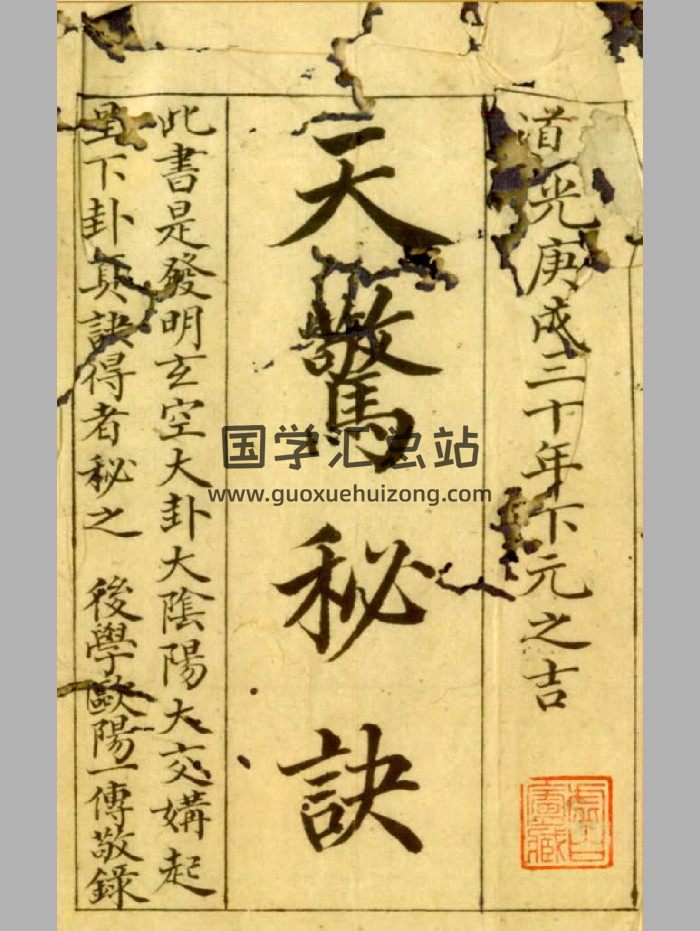 道光庚戌三十年下元之吉
天驚秘訣
此書是發明玄空大卦大陰陽大交媾起
星下卦真訣得者秘之 後學歐陽一傳敬錄
国学汇总站
www.guoxuehuizong.com